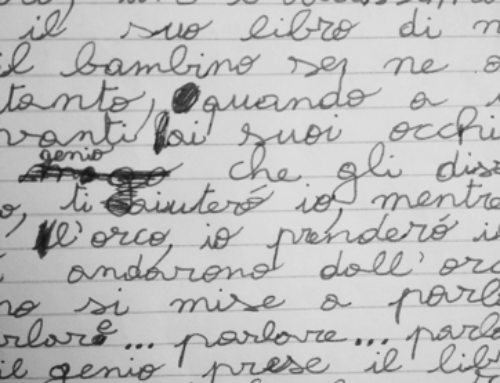 il suo libro di
il bambino se ne
tanto, quando a
vanti ai suoi occhi
genio
che gli
ti aiuteró io, mentre
l'orco, io prenderó
andarono dall'orc
no si mise a parl
rlare... parlare... parl
il genio prese il lib